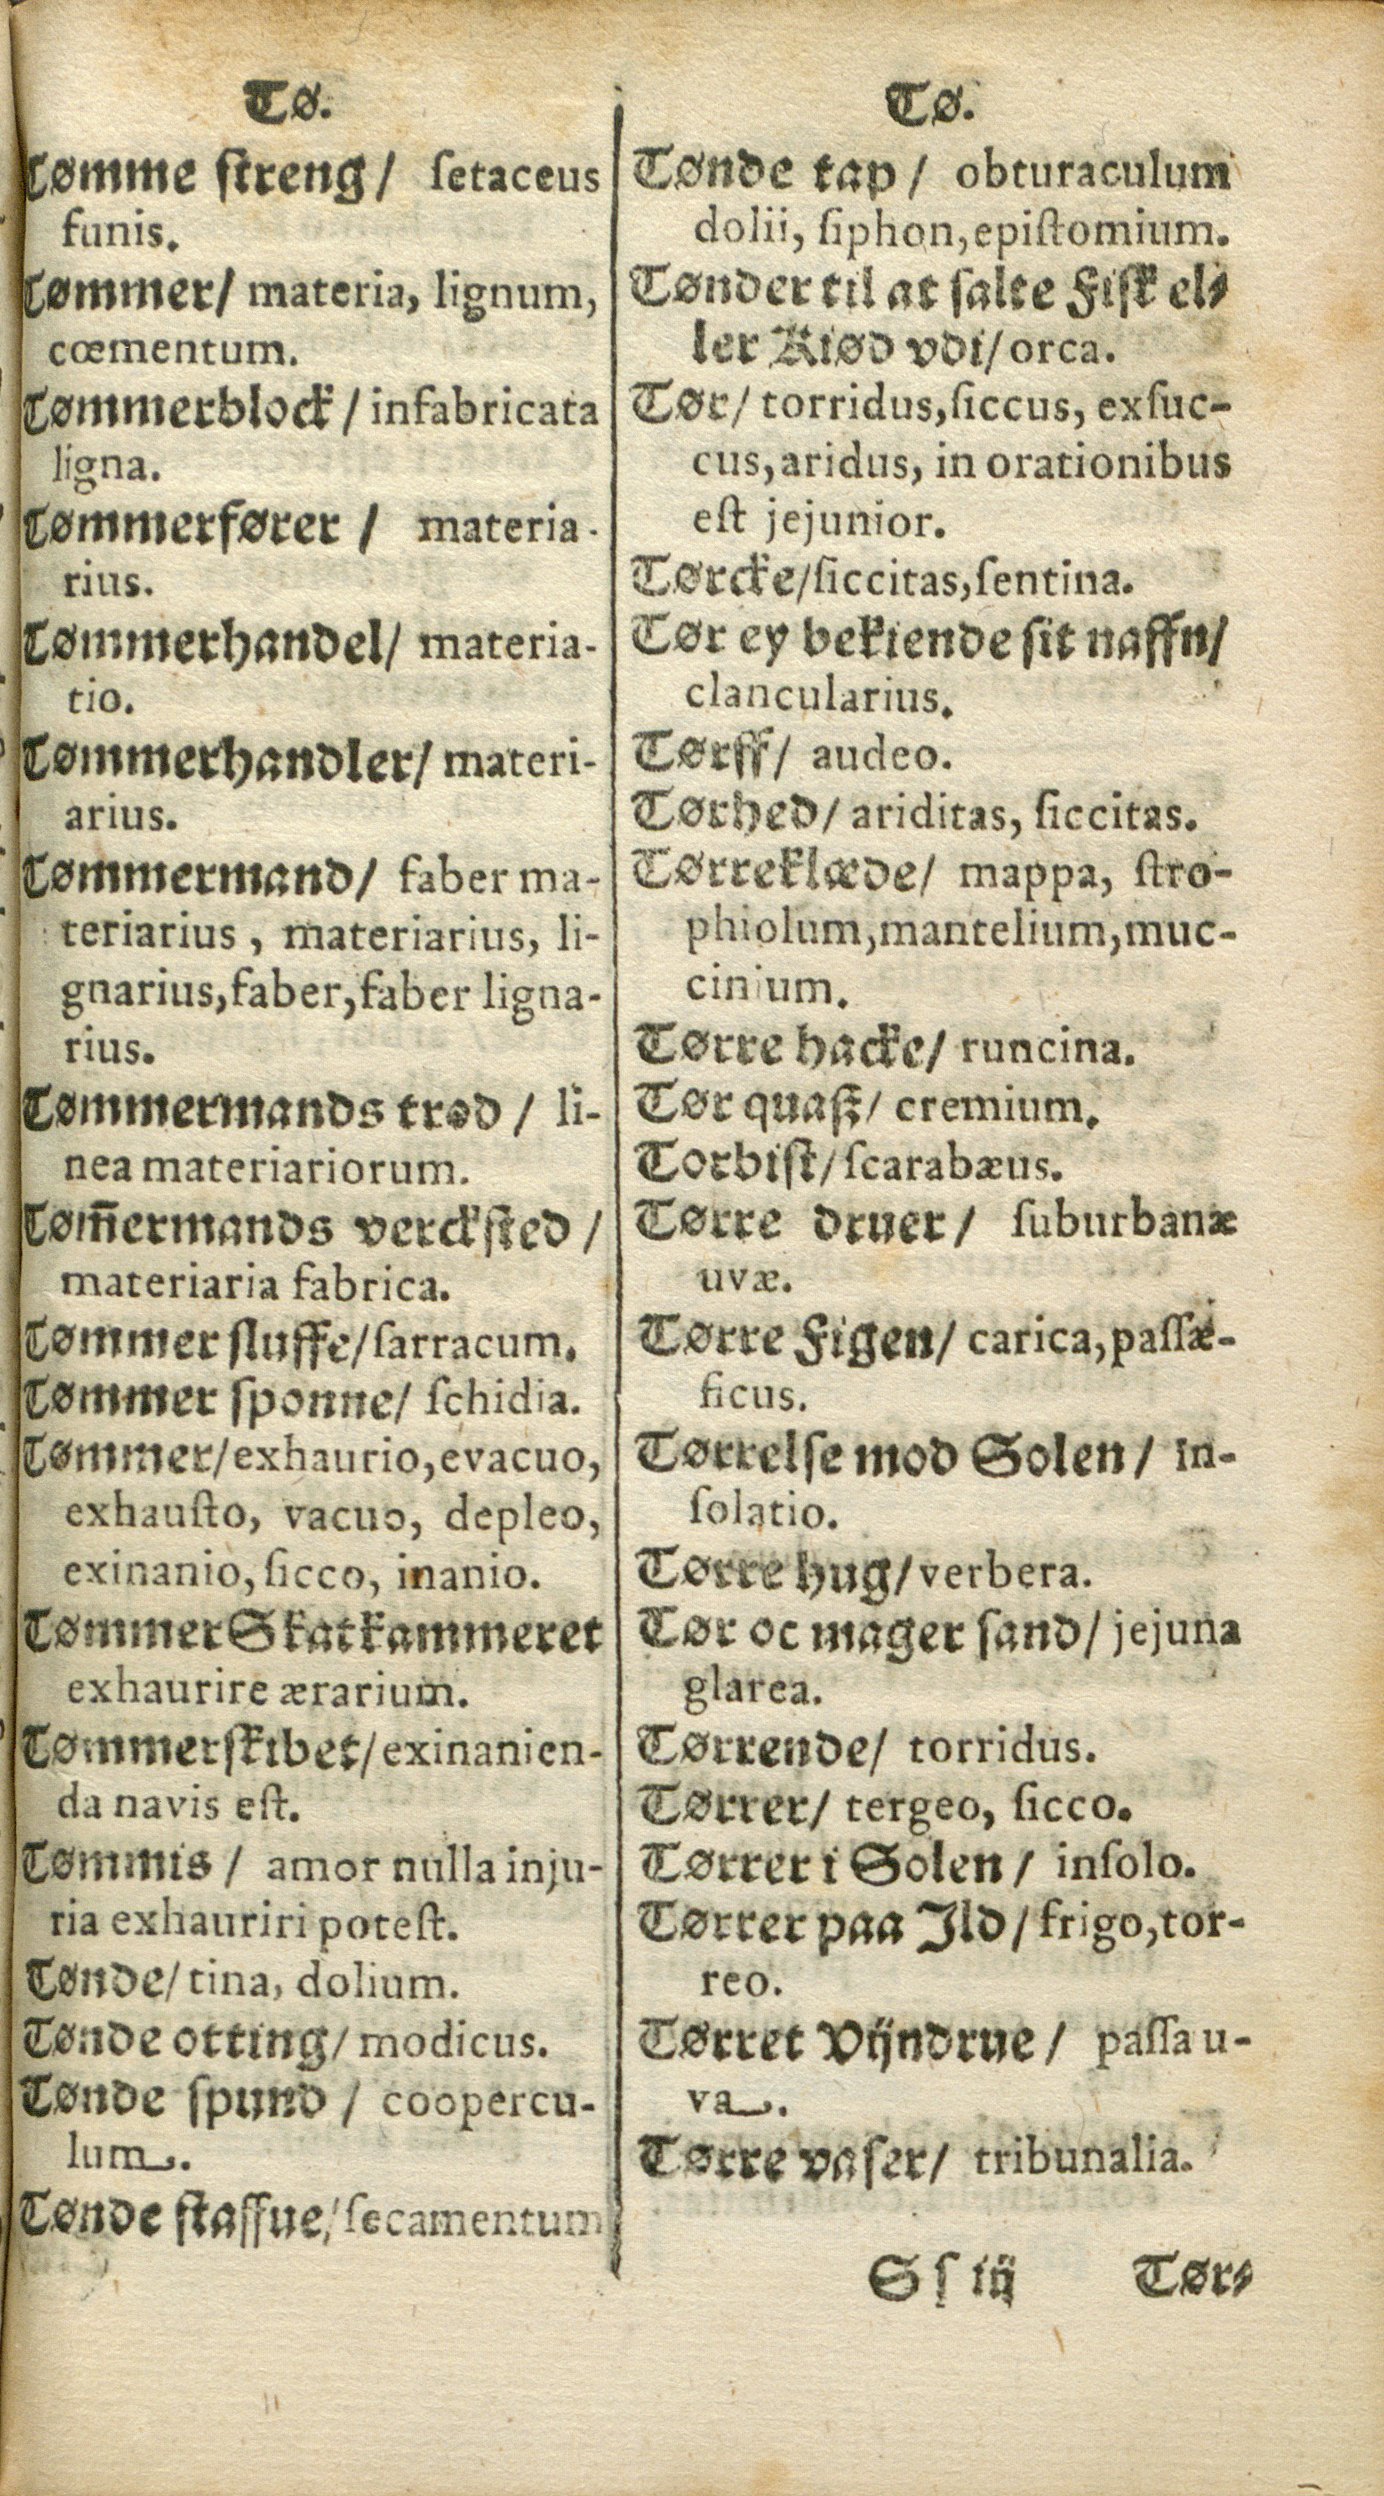 Tø.
Tømme streng/ ſetaceus
funis.
Tømmer/ materia, lignum,
cœmentum.
Tømmerblock/ infabricata
ligna.
Tømmerfører / materia-
rius.
Tømmerhandel/ materia-
tio.
Tømmerhandler/ materi-
arius.
Tømmermand/ faber ma-
teriarius, materiarius, li-
gnarius, faber, faber ligna-
rius.
Tømmermands trød/ li-
nea materiariorum.
Tøm̃ermands verckſted/
materiaria fabrica.
Tømmer ſluffe/ ſarracum.
Tømmer ſponne/ ſchidia.
Tømmer/ exhaurio, evacuo,
exhauſto, vacuo, depleo,
exinanio, ſicco, inanio.
Tømmer Skatkammeret
exhaurire ærarium.
Tømmer ſkibet/ exinanien-
da navis eſt.
Tømmis/ amor nulla inju-
ria exhauriri poteſt.
Tønde/ tina, dolium.
Tønde otting/ modicus.
Tønde ſpund/ coopercu-
lum.
Tønde ſtaffue/ ſecamentum
Tø.
Tønde tap/ obturaculum
dolii, ſiphon, epiſtomium.
Tønder til at ſalte Fiſk el⸗
ler Kiød vdi/ orca.
Tør/ torridus, ſiccus, exſuc-
cus, aridus, in orationibus
eſt jejunior.
Tørcke/ ſiccitas, ſentina.
Tør ey bekiende ſit naffn/
clancularius.
Tørff/ audeo.
Tørhed/ ariditas, ſiccitas.
Tørreklæde/ mappa, ſtro-
phiolum, mantelium, muc-
cinium.
Tørre hacke/ runcina.
Tør quaſt/ cremium.
Torbiſt/ ſcarabæus.
Tørre druer/ ſuburbanæ
uvæ.
Tørre Figen/ carica, paſſæ-
ficus.
Tørrelſe mod Solen/ in-
ſolatio.
Tørre hug/ verbera.
Tør oc mager ſand/ jejuna
glarea.
Tørrende/ torridus.
Tørrer/ tergeo, ſicco.
Tørrer i Solen/ inſolo.
Tørrer paa Jld/ frigo, tor-
reo.
Tørret Vijndrue/ paſſa u-
va.
Tørre vaſer/ tribunalia.
Sſ iij Tør⸗